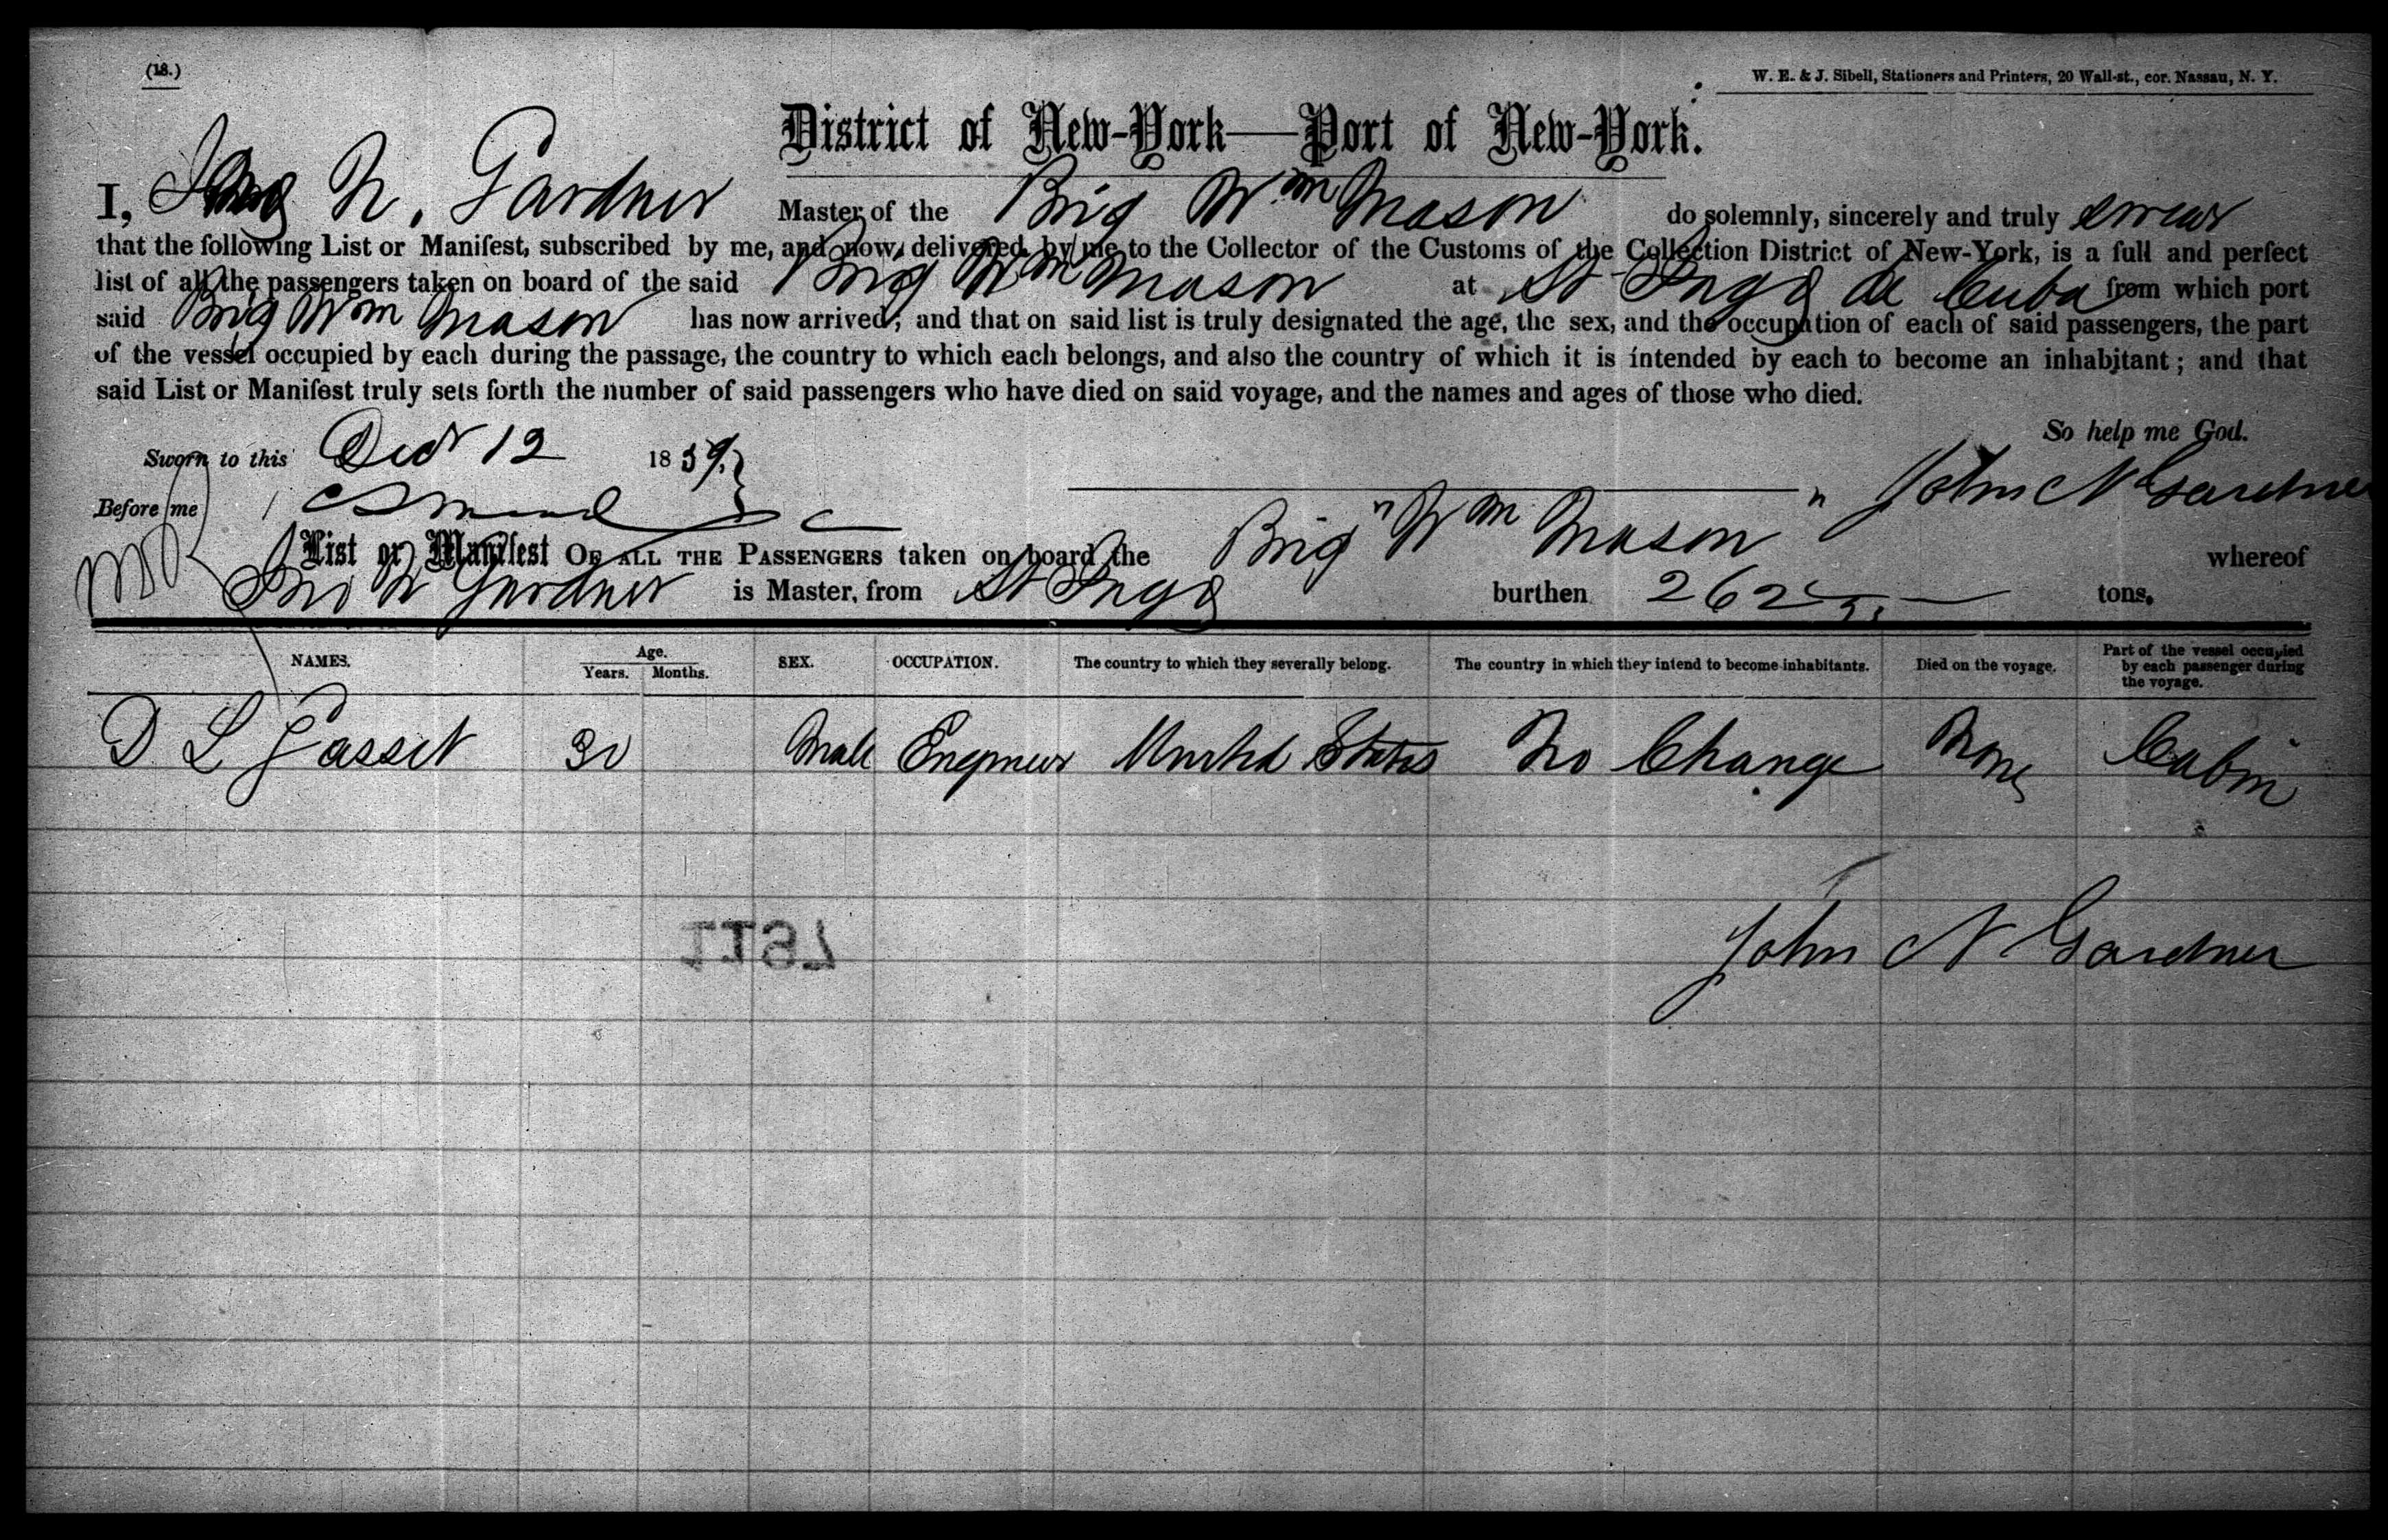 (18.)
W. E. & J. Sibell, Stationers and Printers, 20 Wall-st., cor. Nassau, N. Y.
District of New-York—Port of New-York.
I, Jno N. Gardner Master of the Brig Wm Mason do solemnly, sincerely and truly swear
that the following List or Manifest, subscribed by me, and now delivered by me to the Collector of the Customs of the Collection District of New-York, is a full and perfect
list of all the passengers taken on board of the said Brig Wm Mason at St Jago de Cuba from which port
said Brig Wm Mason has now arrived; and that on said list is truly designated the age, the sex, and the occupation of each of said passengers, the part
of the vessel occupied by each during the passage, the country to which each belongs, and also the country of which it is intended by each to become an inhabitant; and that
said List or Manifest truly sets forth the number of said passengers who have died on said voyage, and the names and ages of those who died.
So help me God.
Sworn to this Decr 12 1859.
John N Gardner
Before me
List or Manifest OF ALL THE PASSENGERS taken on board the Brig "Wm Mason" whereof
Jno N Gardner is Master, from St Jago burthen 262 tons.
NAMES. Age. Years. Months. SEX. OCCUPATION. The country to which they severally belong. The country in which they intend to become inhabitants. Died on the voyage. Part of the vessel occupied by each passenger during the voyage.
D L Gasset 30 Male Engineer United States No Change None Cabin
1197
John N Gardner